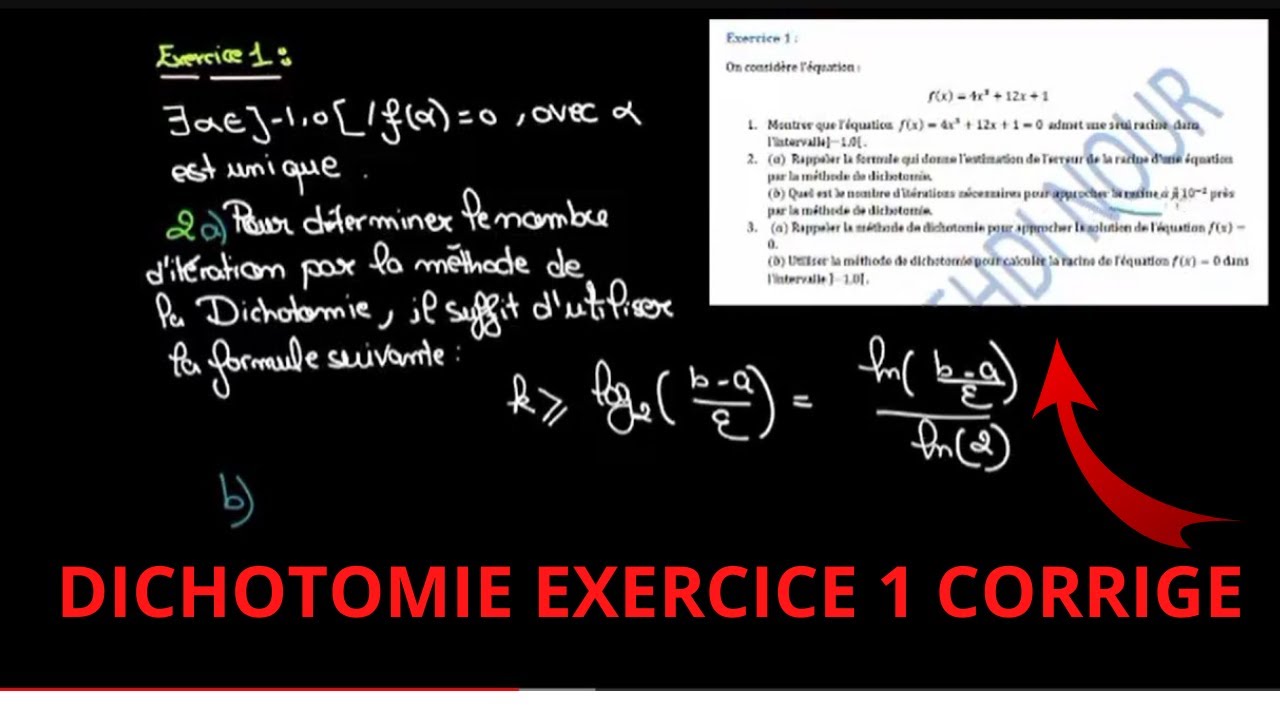 Exercice 1 :
∃ α ∈ ]-1,0[ / f(α) = 0 , avec α
est unique .
2 a) Pour déterminer le nombre
d'itération par la méthode de
la Dichotomie, il suffit d'utiliser
la formule suivante :
k ≥ log₂( (b-a)/ε ) = ln( (b-a)/ε ) / ln(2)
b)
Exercice 1 :
On considère l'équation :
f(x) = 4x³ + 12x + 1
1. Montrer que l'équation f(x) = 4x³ + 12x + 1 = 0 admet une seul racine dans
l'intervalle]-1,0[.
2. (a) Rappeler la formule qui donne l'estimation de l'erreur de la racine d'une équation
par la méthode de dichotomie.
(b) Quel est le nombre d'itérations nécessaires pour approcher la racine α à 10⁻² près
par la méthode de dichotomie.
3. (a) Rappeler la méthode de dichotomie pour approcher la solution de l'équation f(x) =
0.
(b) Utiliser la méthode de dichotomie pour calculer la racine de l'équation f(x) = 0 dans
l'intervalle ]-1,0[.
EHDI NOUR
DICHOTOMIE EXERCICE 1 CORRIGE